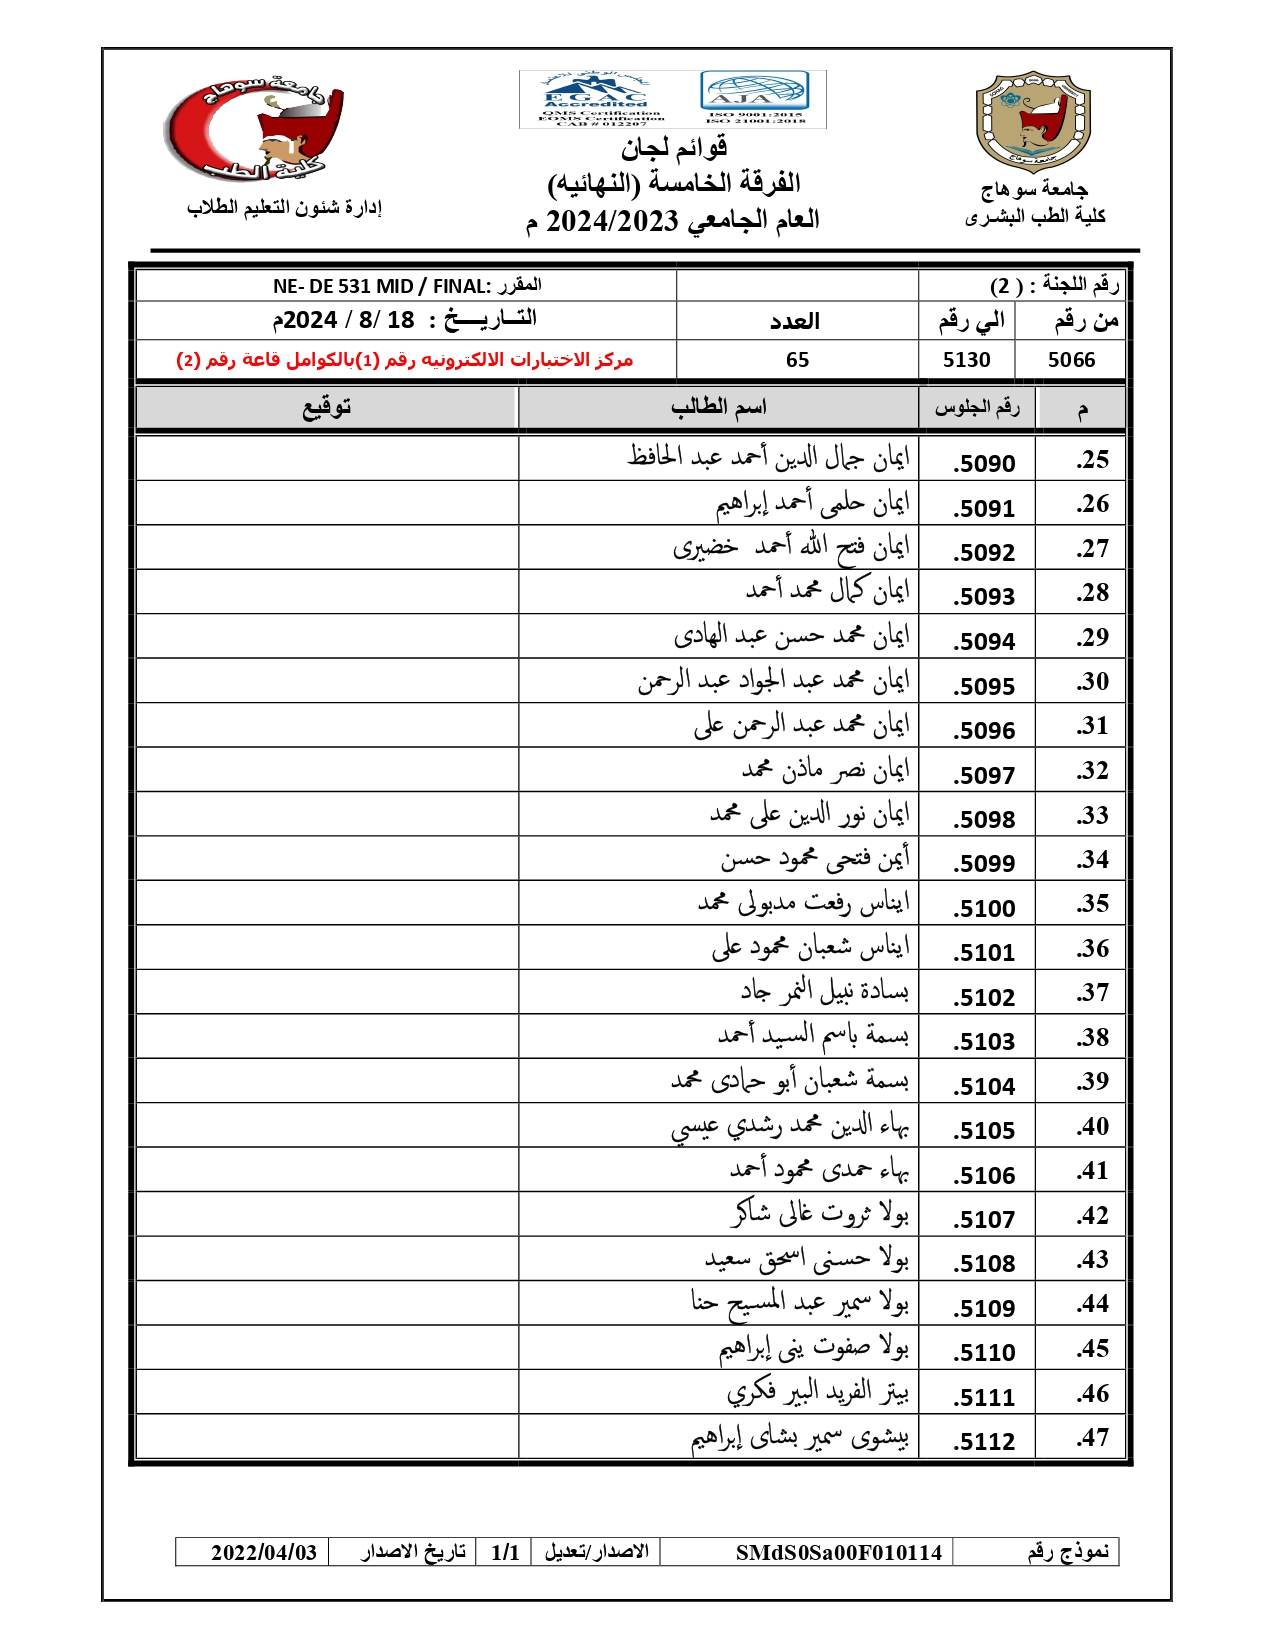 جامعة سوهاج
كلية الطب
إدارة شئون التعليم الطلاب
EGAC
Accredited
QMS Certification
EOMS Certification
CAB # 012207
AJA
ISO 9001:2015
ISO 21001:2018
قوائم لجان
الفرقة الخامسة (النهائيه)
العام الجامعي 2024/2023 م
جامعة سوهاج
جامعة سوهاج
كلية الطب البشرى
رقم اللجنة : ( 2) المقرر :NE- DE 531 MID / FINAL
من رقم الي رقم العدد التــاريـــخ : 18 /8 / 2024م
5066 5130 65 مركز الاختبارات الالكترونيه رقم (1)بالكوامل قاعة رقم (2)
م رقم الجلوس اسم الطالب توقيع
25. 5090. ايمان جمال الدين أحمد عبد الحافظ
26. 5091. ايمان حلمى أحمد إبراهيم
27. 5092. ايمان فتح الله أحمد خضيرى
28. 5093. ايمان كمال محمد أحمد
29. 5094. ايمان محمد حسن عبد الهادى
30. 5095. ايمان محمد عبد الجواد عبد الرحمن
31. 5096. ايمان محمد عبد الرحمن على
32. 5097. ايمان نصر ماذن محمد
33. 5098. ايمان نور الدين على محمد
34. 5099. أيمن فتحى محمود حسن
35. 5100. ايناس رفعت مدبولى محمد
36. 5101. ايناس شعبان محمود على
37. 5102. بسادة نبيل النمر جاد
38. 5103. بسمة باسم السيد أحمد
39. 5104. بسمة شعبان أبو حمادى محمد
40. 5105. بهاء الدين محمد رشدي عيسي
41. 5106. بهاء حمدى محمود أحمد
42. 5107. بولا ثروت غالى شاكر
43. 5108. بولا حسنى اسحق سعيد
44. 5109. بولا سمير عبد المسيح حنا
45. 5110. بولا صفوت ينى إبراهيم
46. 5111. بيتر الفريد البير فكري
47. 5112. بيشوى سمير بشاى إبراهيم
نموذج رقم SMdS0Sa00F010114 الاصدار/تعديل 1/1 تاريخ الاصدار 2022/04/03